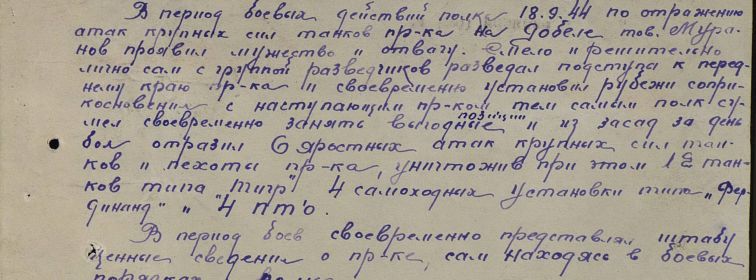 В период боевых действий полка 18.9.44 по отражению
атак крупных сил танков пр-ка на Добеле тов. Мура-
нов проявил мужество и отвагу. Смело и решительно
лично сам с группой разведчиков разведал подступа к перед-
нему краю пр-ка и своевременно установил рубежи сопри-
косновения с наступающим пр-ком, тем самым полк су-
мел своевременно занять выгодные позиции и из засад за день
боя отразил 6 яростных атак крупных сил тан-
ков и пехоты пр-ка, уничтожив при этом 12 тан-
ков типа "Тигр" 4 самоходных установки типа "Фер-
динанд" и 4 ПТО.
В период боев своевременно представлял штабу
ценные сведения о пр-ке, сам находясь в боевых
порядках